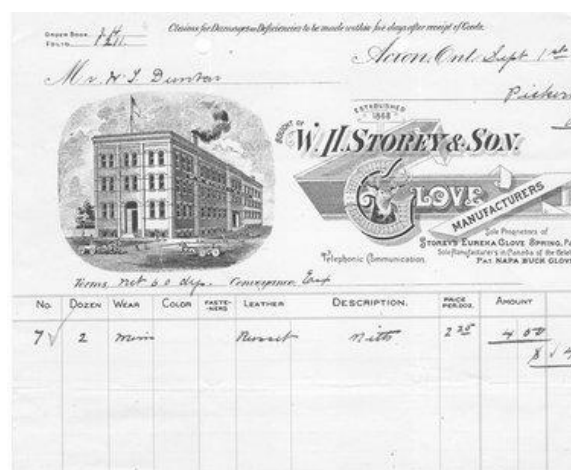 ORDER BOOK
FOLIO
Claims for Damages or Deficiencies to be made within five days after receipt of Goods.
Acton, Ont. Sept 1st
Mr. Dunbar
Picker
ESTABLISHED
1868
BOUGHT OF
W. H. STOREY & SON.
GLOVE
MANUFACTURERS
Sole Proprietors of
STOREY'S EUREKA GLOVE SPRING, PA
Sole Manufacturers in Canada of the Celeb
PAT NAPA BUCK GLOV
Telephonic Communication.
Terms, net 60 dys. Conveyance,
No. DOZEN WEAR COLOR FASTE-NERS LEATHER DESCRIPTION. PRICE PER DOZ. AMOUNT
7 2 Mens Russet Mitts 2 25 4 50